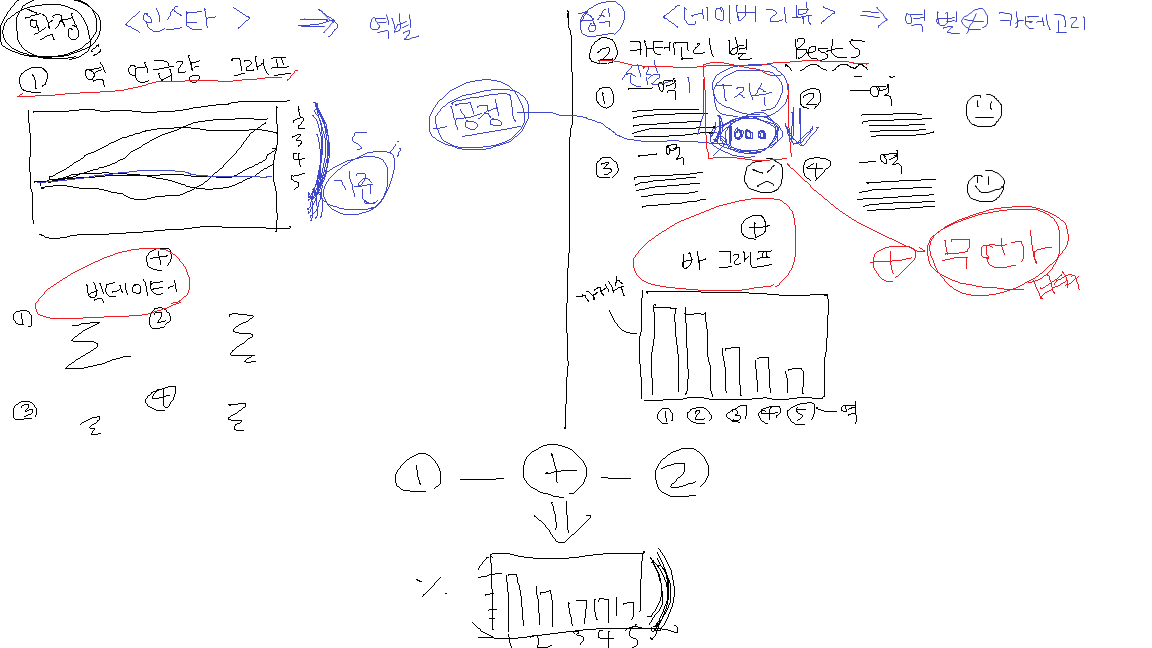 확정 <인스타> ⇒ 역별
① 역 언급량 그래프
1
2
3
4
5
5
기준
긍정
+
빅데이터
① ②
③ ④
음식 <네이버 리뷰> ⇒ 역별 + 카테고리
② 카테고리 별 Best 5
① 一역 T지수 ② 一역
③ 一역 ④ 一역
+
바 그래프
+ 무언가
① ② ③ ④ ⑤ 一역
① — + — ②
%
1 2 3 4 5